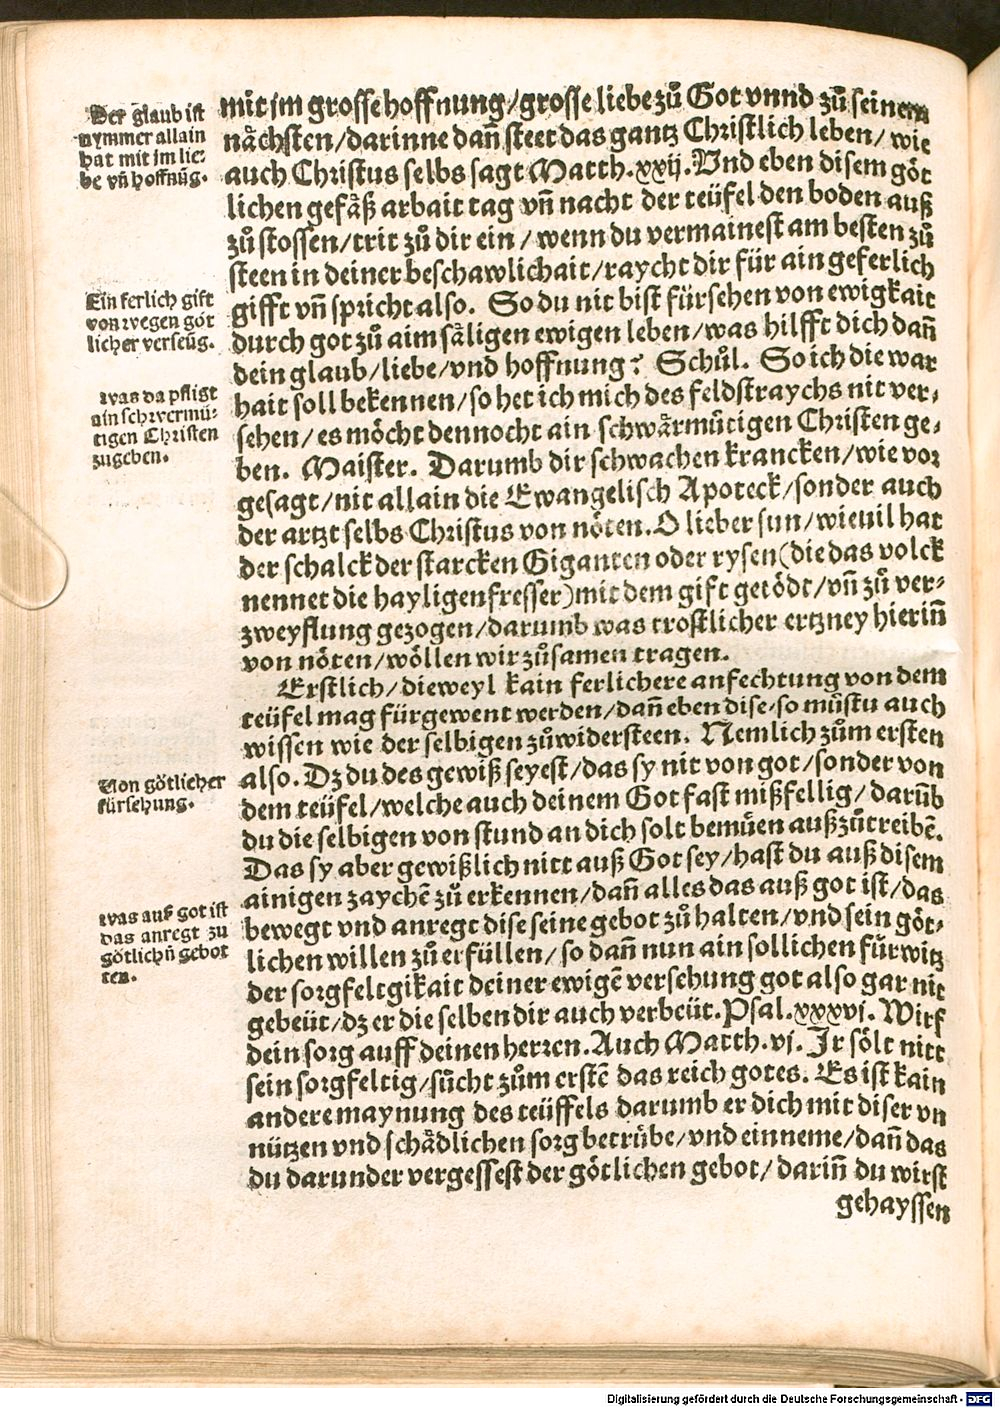 mit jm grosse hoffnung/grosse liebe zů Got vnnd zů seinem
nåchsten/darinne dañ steet das gantz Christlich leben/wie
auch Christus selbs sagt Matth.xxij. Vnd eben disem göt
lichen gefåß arbait tag vñ nacht der teüfel den boden auß
zů stossen/trit zů dir ein/wenn du vermainest am besten zů
steen in deiner beschawlichait/raycht dir für ain geferlich
gifft vñ spricht also. So du nit bist fürsehen von ewigkait
durch got zů aim såligen ewigen leben/was hilfft dich dañ
dein glaub/liebe/vnd hoffnung? Schůl. So ich die war
hait soll bekennen/so het ich mich des feldstraychs nit ver-
sehen/es möcht dennocht ain schwårmůtigen Christen ge-
ben. Maister. Darumb dir schwachen krancken/wie vor
gesagt/nit allain die Ewangelisch Apoteck/sonder auch
der artzt selbs Christus von nöten. O lieber sun/wieuil hat
der schalck der starcken Giganten oder rysen (die das volck
nennet die hayligenfresser) mit dem gift getödt/vñ zů ver-
zweyflung gezogen/darumb was trostlicher ertzney hieriñ
von nöten/wöllen wir zůsamen tragen.
Erstlich/dieweyl kain ferlichere anfechtung von dem
teüfel mag fürgewent werden/dañ eben dise/so můstu auch
wissen wie der selbigen zůwidersteen. Nemlich zům ersten
also. Dz du des gewiß seyest/das sy nit von got/sonder von
dem teüfel/welche auch deinem Got fast mißfellig/darũb
du die selbigen von stund an dich solt bemüen außzůtreibẽ.
Das sy aber gewißlich nitt auß Got sey/hast du auß disem
ainigen zaychẽ zů erkennen/dañ alles das auß got ist/das
bewegt vnd anregt dise seine gebot zů halten/vnd sein göt-
lichen willen zů erfüllen/so dañ nun ain sollichen fürwitz
der sorgfeltgikait deiner ewigẽ versehung got also gar nit
gebeüt/dz er die selben dir auch verbeüt. Psal.xxxvi. Wirf
dein sorg auff deinen herren. Auch Matth.vj. Jr sölt nitt
sein sorgfeltig/sůcht zům erstẽ das reich gotes. Es ist kain
andere maynung des teüffels darumb er dich mit diser vn
nützen vnd schådlichen sorg betrübe/vnd einneme/dañ das
du darunder vergessest der götlichen gebot/dariñ du wirst
gehayssen
Der glaub ist
nymmer allain
hat mit im lie-
be vñ hoffnũg.
Ein ferlich gift
von wegen göt
licher verseũg.
was da pfligt
ain schwermü-
tigen Christen
zugeben.
Von götlicher
fürsehung.
was auß got ist
das anregt zu
götlichñ gebot
ten.
Digitalisierung gefördert durch die Deutsche Forschungsgemeinschaft - DFG